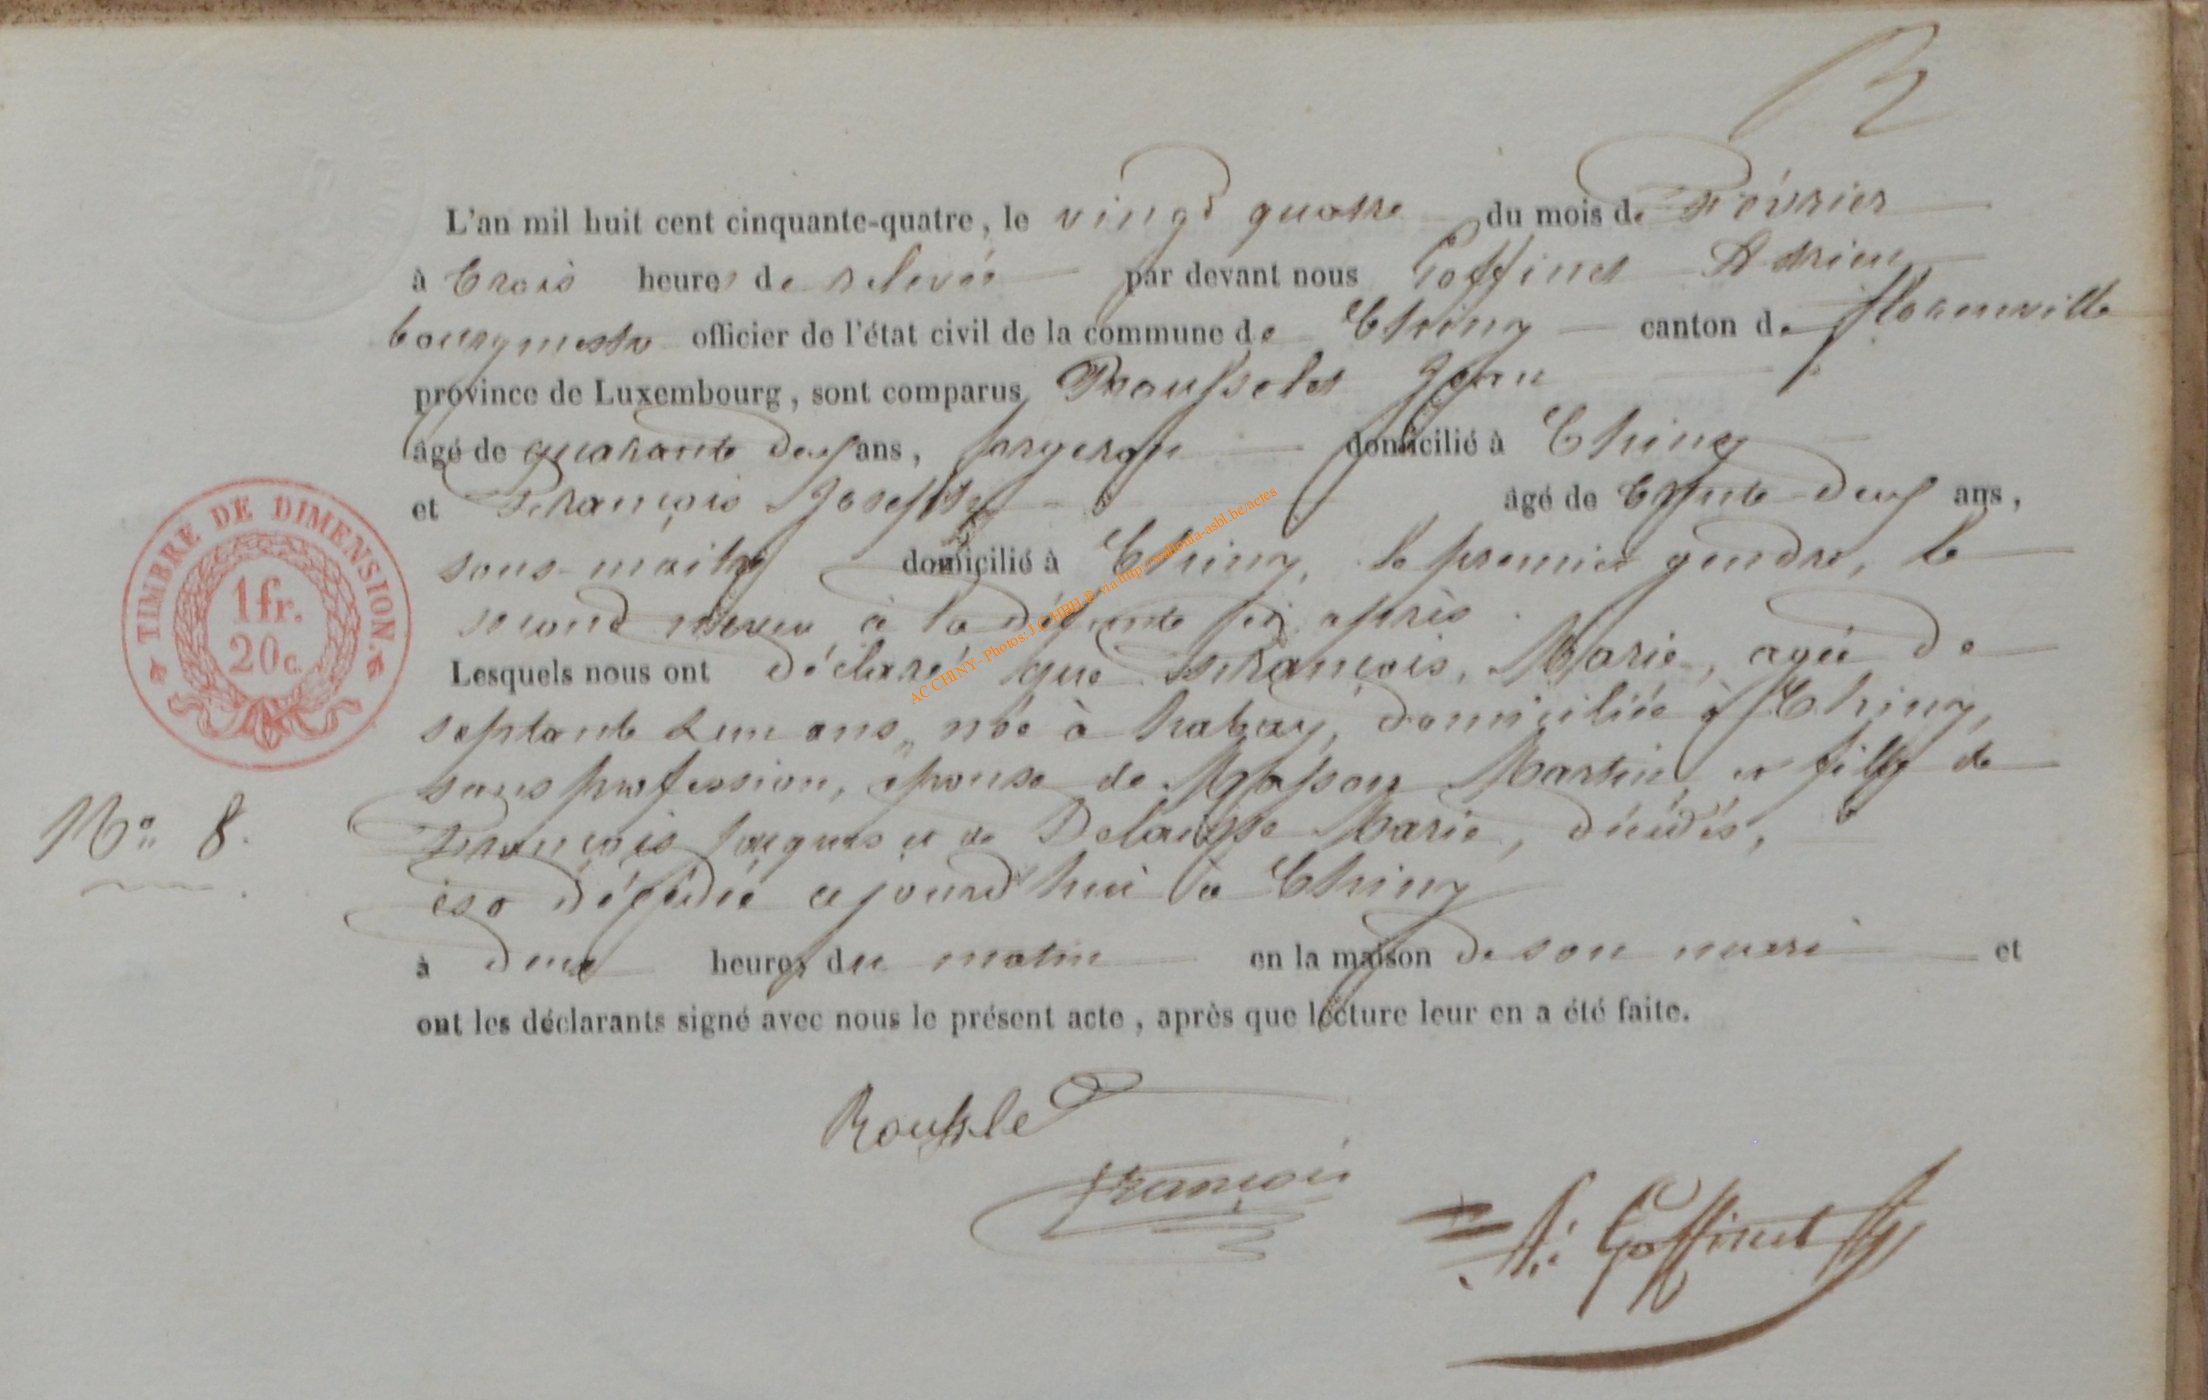 L'an mil huit cent cinquante-quatre, le vingt quatre du mois de Février
à trois heures de relevée par devant nous Goffinet Adrien
bourgmestre officier de l'état civil de la commune de Chiny canton de florenville
province de Luxembourg, sont comparus Rousselet Jean
âgé de quarante deux ans, forgeron domicilié à Chiny
et François Joseph âgé de trente deux ans,
sous-maître domicilié à Chiny, le premier gendre, le
second neveu à la défunte ci après.
Lesquels nous ont déclaré que François, Marie, agée de
septante & un ans, née à habay, domiciliée à Chiny,
sans profession, épouse de Masson Martin et fille de
François Jacques et de Marie, décédés,
est décédée cejourd'hui à Chiny
à deux heures du matin en la maison de son mari et
ont les déclarants signé avec nous le présent acte, après que lecture leur en a été faite.
TIMBRE DE DIMENSION.
1 fr.
20 c.
No. 8.
François
A. Goffinet
AC CHINY - Photos: via http://